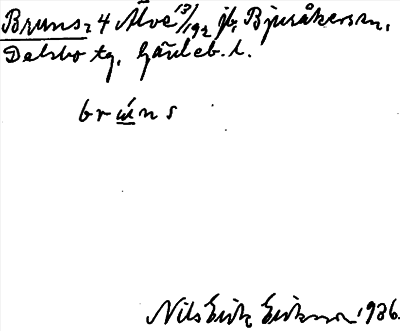 Bruns= 4 Älve 13/192 jb, Bjuråkers sn,
Delsbo tg, Gävleb. l.
bruns
Nils Erik Eriksson 1926.